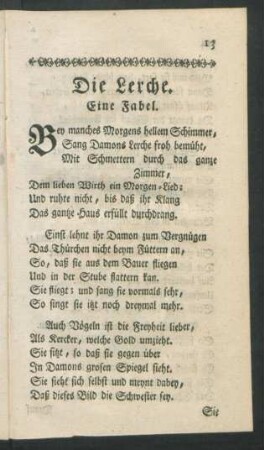 13
Die Lerche.
Eine Fabel.
Bey manches Morgens hellem Schimmer,
Sang Damons Lerche froh bemüht,
Mit Schmettern durch das ganze
Zimmer,
Dem lieben Wirth ein Morgen-Lied:
Und ruhte nicht, bis daß ihr Klang
Das gantze Haus erfüllt durchdrang.
Einst lehnt ihr Damon zum Vergnügen
Das Thürchen nicht beym Füttern an,
So, daß sie aus dem Bauer fliegen
Und in der Stube flattern kan.
Sie fliegt; und sang sie vormals sehr,
So singt sie itzt noch dreymal mehr.
Auch Vögeln ist die Freyheit lieber,
Als Kercker, welche Gold umzieht.
Sie sitzt, so daß sie gegen über
In Damons grosen Spiegel sieht.
Sie sieht sich selbst und meynt dabey,
Daß dieses Bild die Schwester sey.
Sie